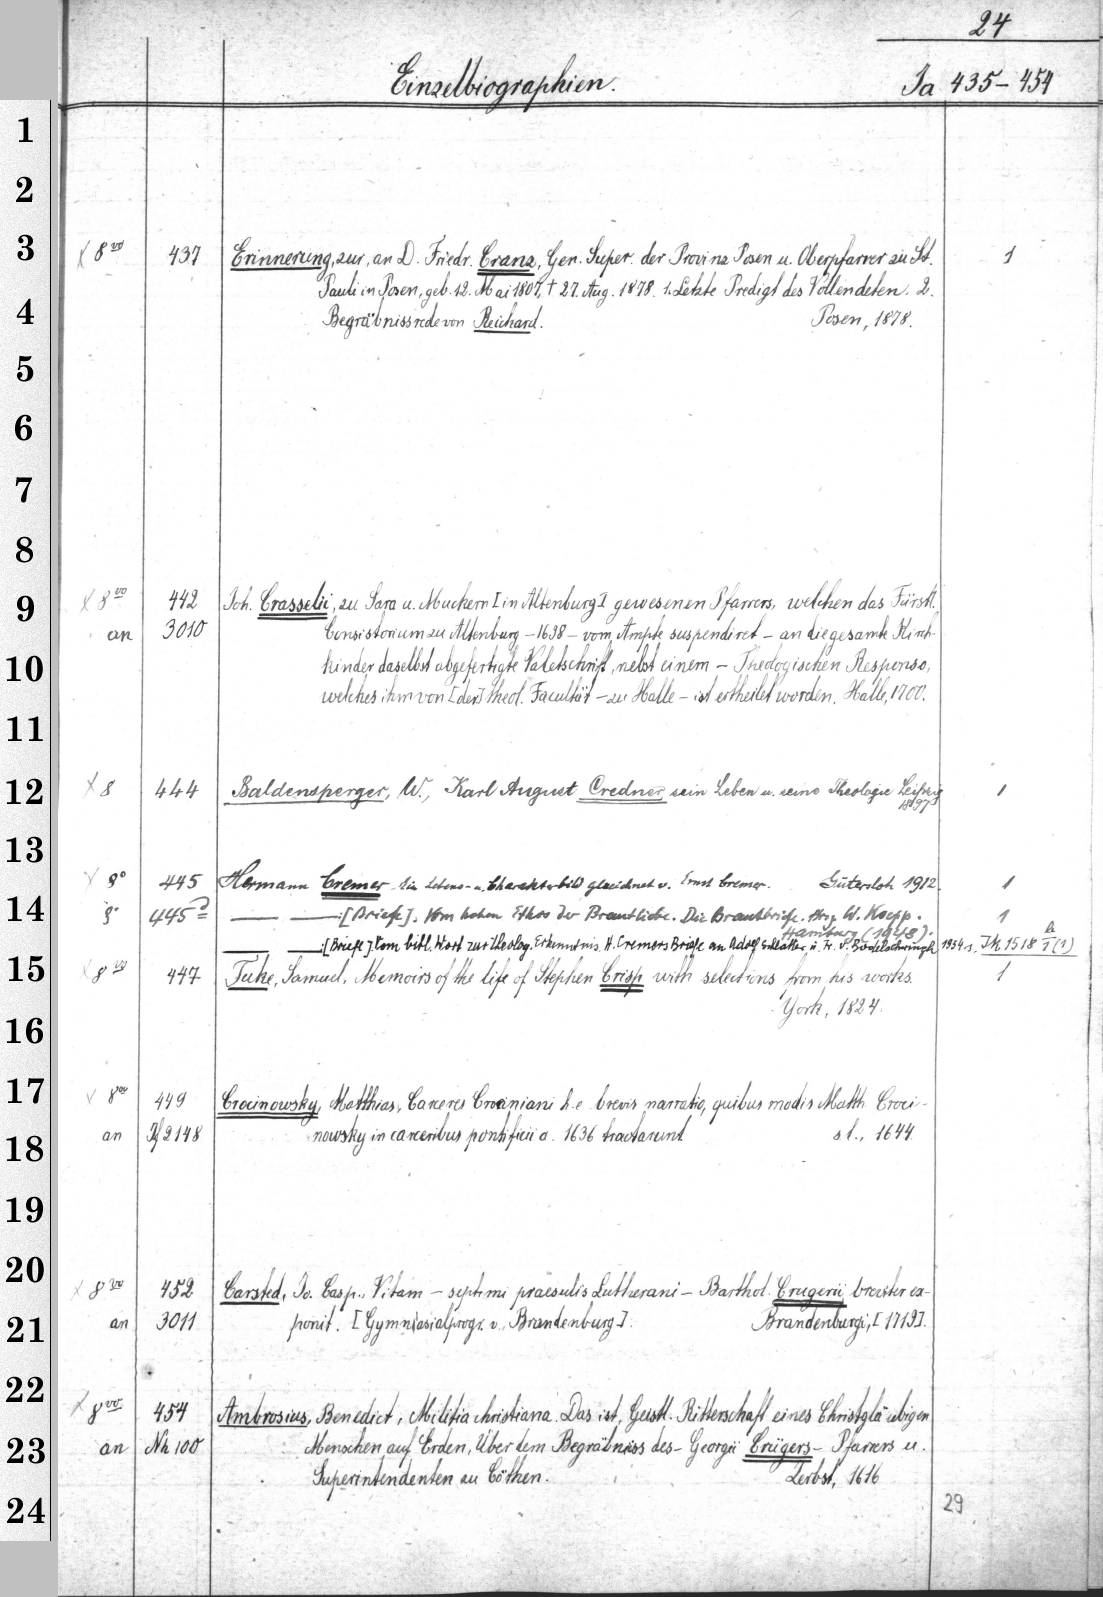 24
Einzelbiographien. Ja 435-454
1
2
3
4
5
6
7
8
9
10
11
12
13
14
15
16
17
18
19
20
21
22
23
24
x 8vo 437 Erinnerung, zur, an D. Friedr. Cranz, Gen. Super. der Provinz Posen u. Oberpfarrer zu St. 1
Pauli in Posen, geb. 12. Mai 1807, † 27. Aug. 1878. 1. Letzte Predigt des Vollendeten. 2.
Begräbnissrede von Reichard. Posen, 1878.
x 8vo 442 Joh. Crasselii, zu Sara u. Muckern [in Altenburg] gewesenen Pfarrers, welchen das Fürstl.
an 3010 Consistorium zu Altenburg - 1698 - vom Ampte suspendiret - an die gesamte Kirch-
kinder daselbst abgefertigte Valetschrift, nebst einem - Theologischen Responso,
welches ihm von [der] theol. Facultät - zu Halle - ist ertheilet worden. Halle, 1700.
x 8 444 Baldensperger, W., Karl August Credner, sein Leben u. seine Theologie Leipzig 1
1897
x 8° 445 Hermann Cremer. Ein Lebens- u. Charakterbild gezeichnet v. Ernst Cremer. Gütersloh 1912. 1
8° 445a — — : [Briefe]. Vom hohen Ethos der Brautliebe. Die Brautbriefe. Hrsg. W. Koepp. 1
Hamburg (1948).
— — : [Briefe] Vom bibl. Wort zur theolog. Erkenntnis. H. Cremers Briefe an Adolf Schlatter u. Fr. v. Bodelschwingh 1954 s. Jk 1518 h/1(1)
x 8vo 447 Tuke, Samuel, Memoirs of the life of Stephen Crisp with selections from his works. 1
York, 1824.
x 8vo 449 Crocinowsky, Matthias, Carceres Crociniani h. e. brevis narratio, quibus modis Matth Croci-
an If 2148 nowsky in carceribus pontificii a. 1636 tractarunt s l., 1644
x 8vo 452 Carsted, Jo. Casp., Vitam - septimi praesulis Lutherani - Barthol. Crugerii breviter ex-
an 3011 ponit. [Gymnasialprogr. v. Brandenburg]. Brandenburgi, [1719].
x 8vo 454 Ambrosius, Benedict, Militia christiana. Das ist, Geistl. Ritterschaft eines Christgläubigen
an Nh 100 Menschen auf Erden, Über dem Begräbniss des - Georgii Crügers - Pfarrers u.
Superintendenten zu Cöthen. Zerbst, 1616
29